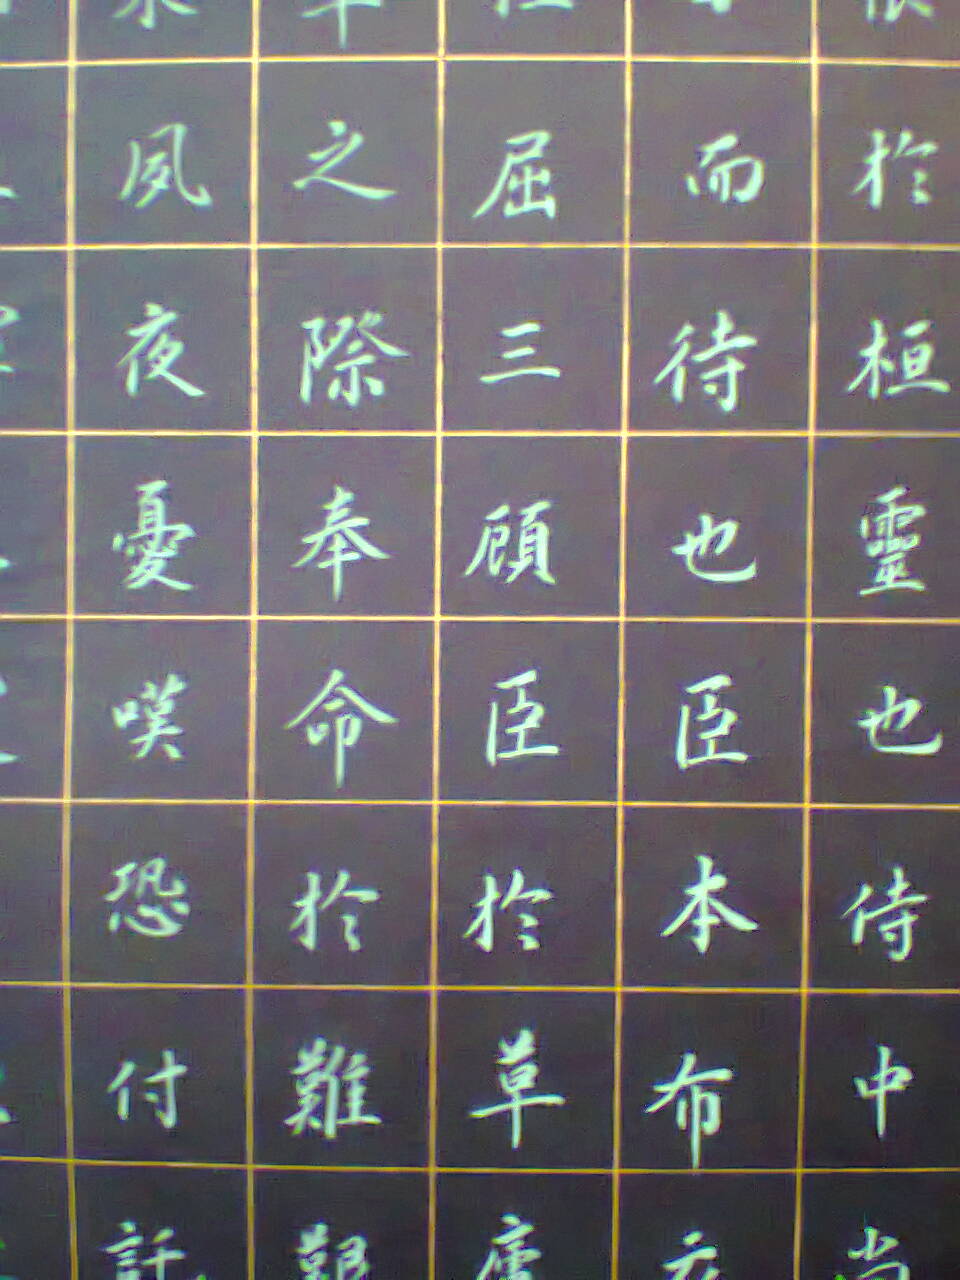 於桓靈也侍中尚
而待也臣本布衣
屈三顧臣於草廬
之際奉命於難艱
夙夜憂嘆恐付託